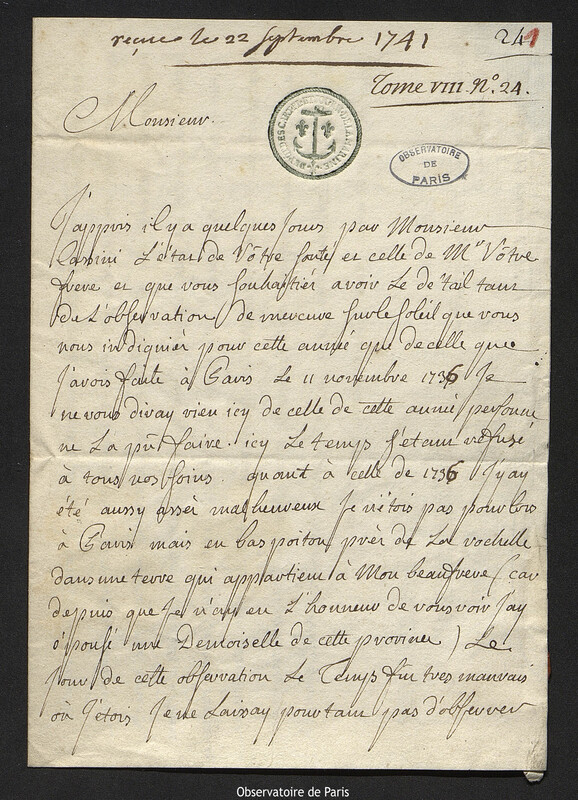 reçue le 22 Septembre 1741
241
Tome VIII. N.° 24.
Monsieur.
OBSERVATOIRE DE PARIS
J'appris il y a quelques Jours par Monsieur
Cassini L'état de Vôtre santé et celle de Mr Vôtre
frere et que vous souhaittiér avoir Le detail tant
de L'observation de mercure sur le soleil que vous
nous indiquier pour cette année que de celle que
J'avois faite à Paris Le 11 novembre 1736 Je
ne vous diray rien icy de celle de cette année personne
ne La pût faire icy Le temps s'étant refusé
à tous nos soins. quant à celle de 1736 J'y ay
été aussy assèr malheureux Je n'étois pas pour lors
à Paris mais en bas poitou prèr de La rochelle
dans une terre qui appartient à Mon beaufrere (car
depuis que Je n'ay eu L'honneur de vous voir J'ay
épousé une Demoiselle de cette province) Le
Jour de cette observation Le Temps fût tres mauvais
où J'étois Je ne Laissay pourtant pas d'observer
Observatoire de Paris